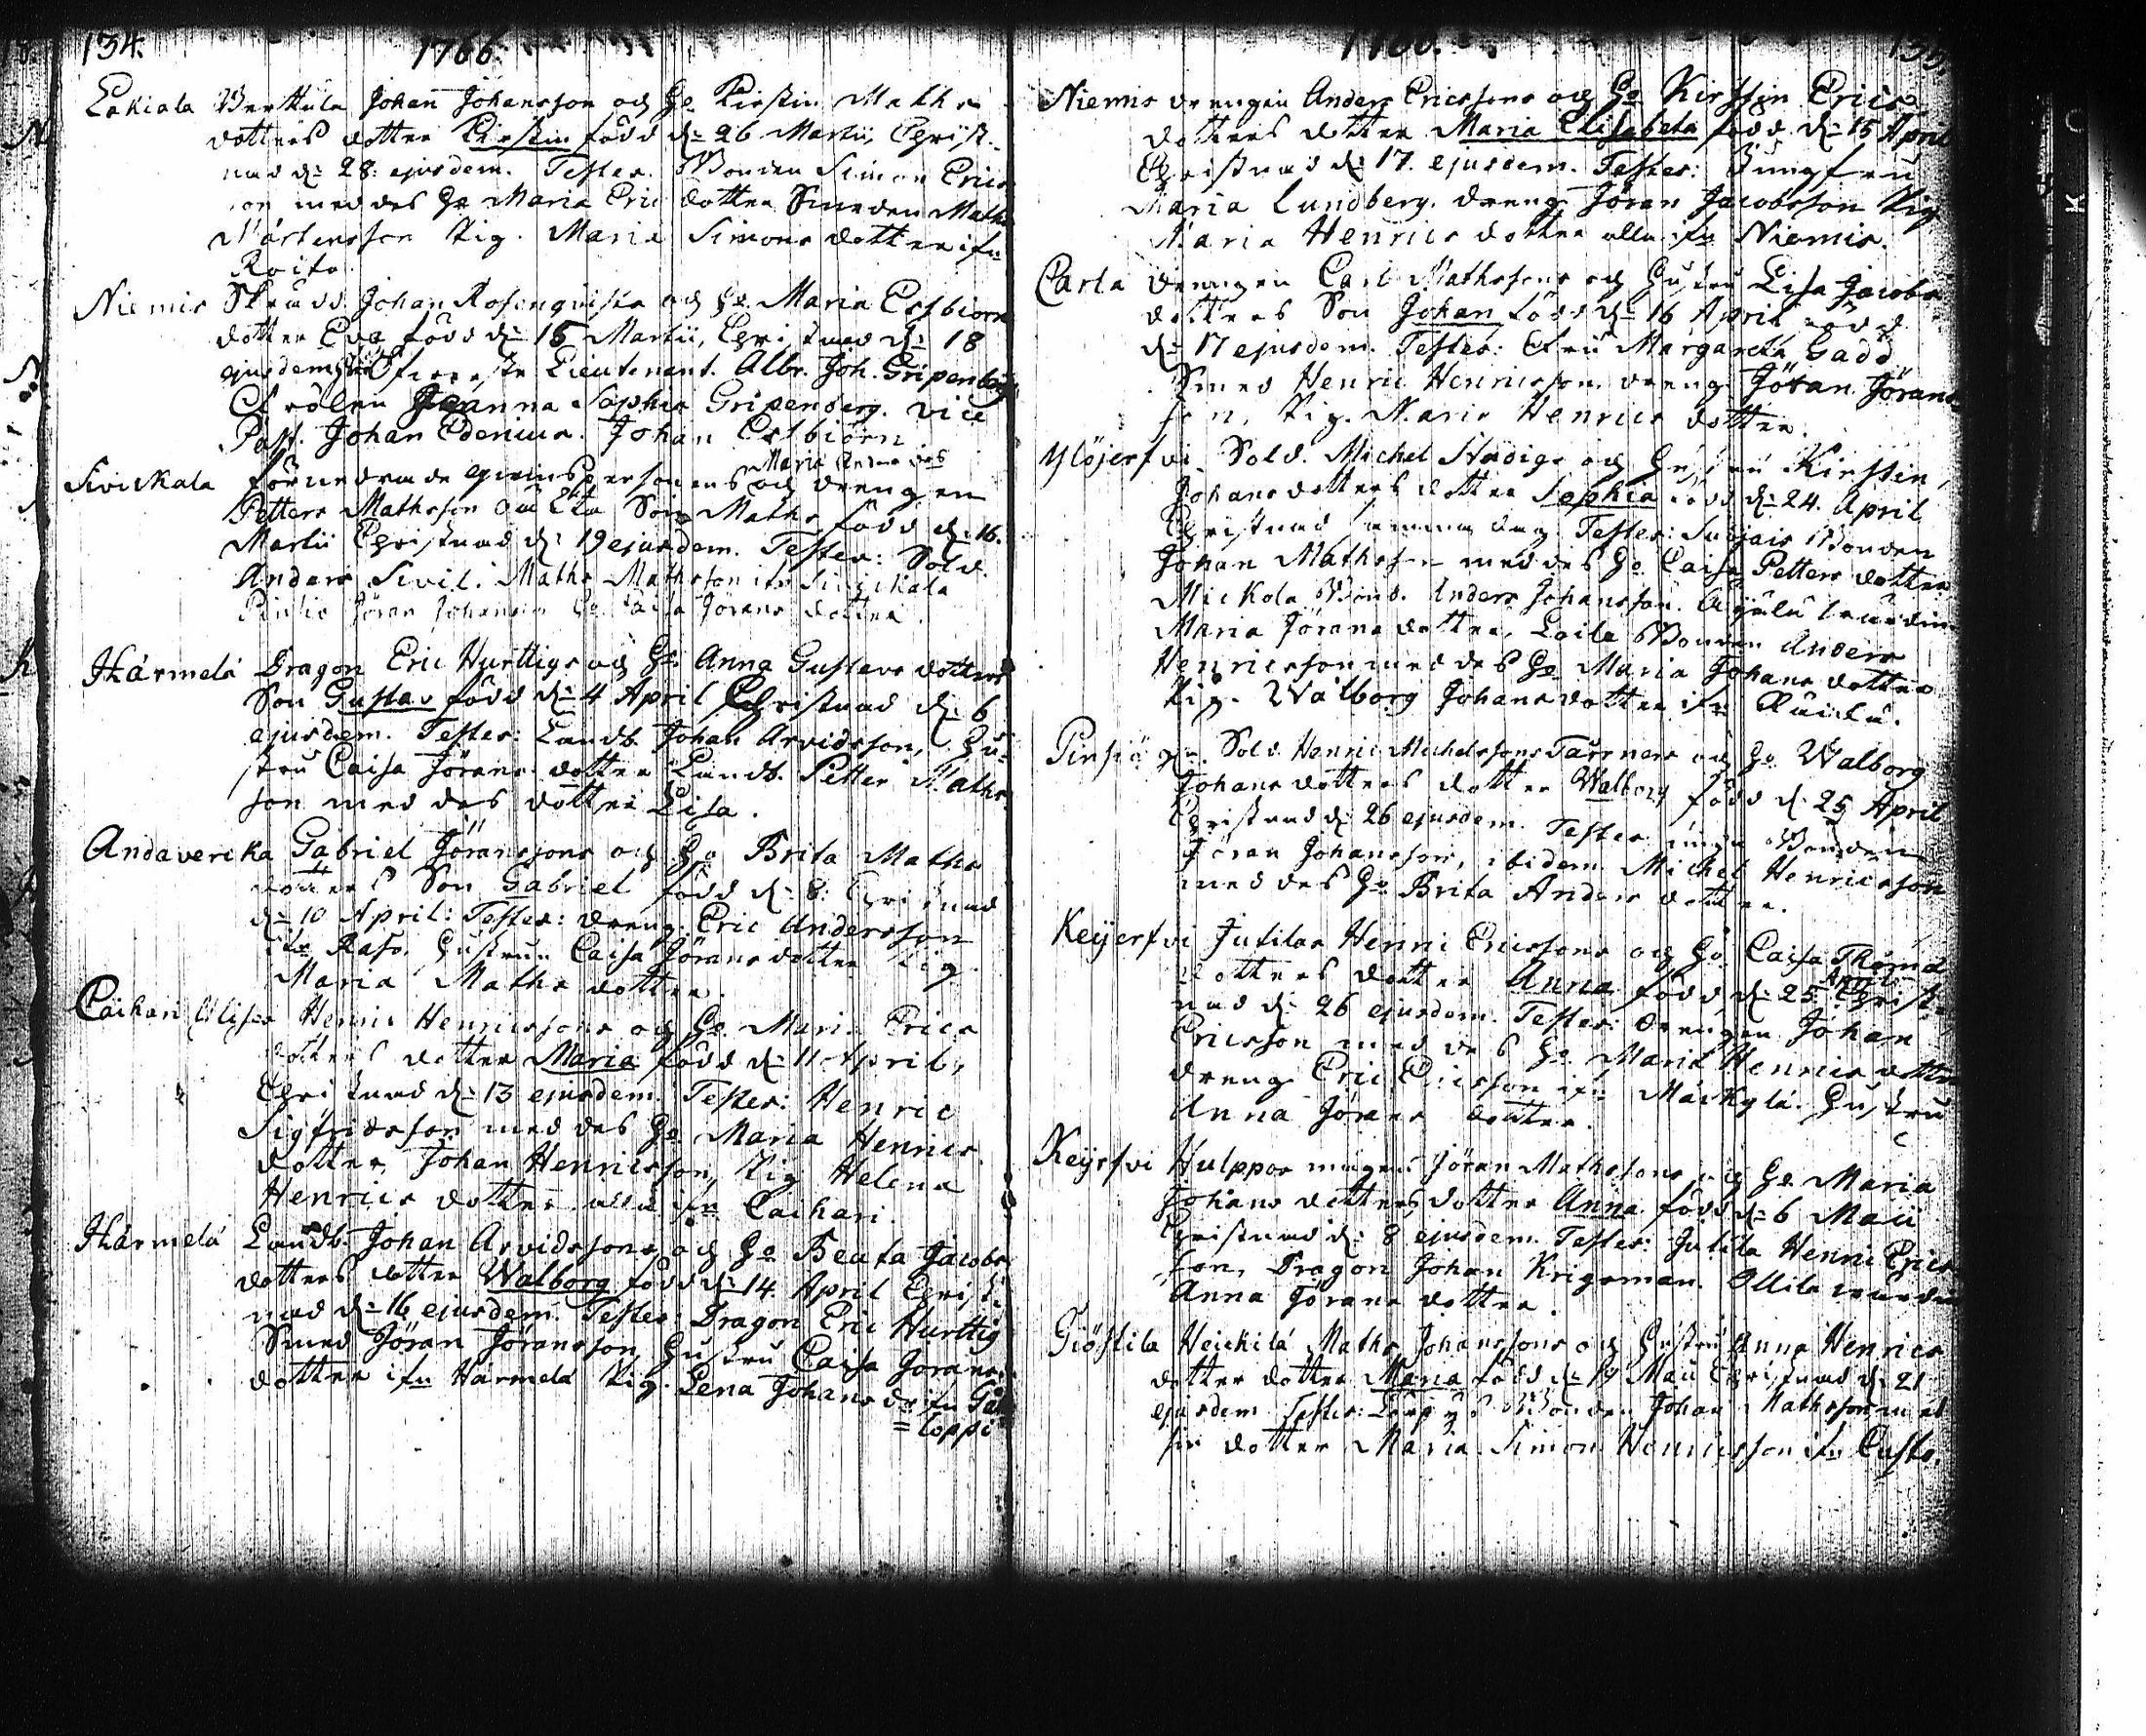 134.
1766.
Lakiala Berttula Johan Johansson och Ho Kirstin Maths
dotters dotter Kirstin född d: 26 Martii, Christ-
nad d: 28: ejusdem. Testes. Bonden Simon Erics
son med des Ho Maria Erics dotter Smeden Maths
Mårtensson Pig. Maria Simons dotter ifn
Roito.
Niemis Skrädd. Johan Rosenquists och Ho Maria Estbiörn
dotter Eva född d: 15 Martii, Christnad d: 18
ejusdem Lieutenant. Albr. Joh. Gripenberg
Fröken Joanna Sophia Gripenberg. Vice
Past. Johan Edenius. Johan Estbiörn
Maria Anders dos
Sivickala förnedrade qvinspersonens och drengen
Petters Mathsson Son Maths född d: 16.
Martii Christnad d: 19 ejusdem. Testes: Sold.
Anders Sivil. Maths Mathsson ifn Sivickala
Pinsiö Jöran Johansson Ho Caisa Jörans dotter.
Härmelä Dragon Eric Hurttigs och Ho Anna Gustavs dotters
Son Gustav född d: 4 April Christnad d: 6
ejusdem. Testes: Landb. Johan Arvidsson, Hu-
stru Caisa Jörans dotter Landb. Petter Maths
son med des dotter Lisa.
Andaverckka Gabriel Jöranssons och Ho Brita Maths
dotters Son Gabriel född d: 8: Christnad
d: 10 April: Testes: dreng Eric Andersson
ifn Raso. Hustrun Caisa Jörans dotter Pig.
Maria Maths dotter.
Caihari Ylises Henric Henricssons och Ho Maria Erics
dotters dotter Maria född d: 11 April,
Christnad d: 13 ejusdem. Testes: Henric
Sigfridsson med des Ho Maria Henrics
dotter, Johan Henricsson, Pig Helena
Henrics dotter alla ifn Caihari.
Härmelä Landb. Johan Arvidssons och Ho Beata Jacobs
dotters dotter Walborg född d: 14 April Christ-
nad d: 16 ejusdem. Testes: Dragon Eric Hurttig
Smed Jöran Jöransson, Hustru Caisa Jörans
dotter ifn Härmelä Pig. Lena Johans dr ifn Ga
=loppi
1766.
135.
Niemis drengen Anders Ericssons och Ho Kirstin Erics
dotters dotter Maria Elisabeta född d: 15 April
Christnad d: 17. ejusdem. Testes: Jungfru
Maria Lundberg. dreng Jöran Jacobsson Pig
Maria Henrics dotter alla ifn Niemis.
Carla drengen Carl Mathssons och Hustru Lisa Jacobs
dotters Son Johan född d: 16 April
d: 17 ejusdem. Testes: Fru Margareta Gadd
Smed Henric Henricsson dreng Jöran Jörans
son, Pig. Maria Henrics dotter.
Ylöjerfvi Sold. Michel Stadigs och Hustru Kirstin
Johans dotters dotter Sophia född d: 24. April
Christnad samma dag. Testes: Bonden
Johan Mathsson med des Ho Caisa Petters dotter
Mickola Bond. Anders Johansson.
Maria Jörans dotter, Laila Bonden Anders
Henricsson med des Ho Maria Johans dotter
Pig. Walborg Johans dotter ifn
Pinsiö Sold. Henric Michelssons och Ho Walborg
Johans dotters dotter Walborg född d: 25 April
Christnad d: 26 ejusdem. Testes Bonden
Jöran Johansson, ibidem Michel Henricsson
med des Ho Brita Anders dotter.
Keijerfvi Jutilas Henric Ericssons och Ho Caisa Thoma
dotters dotter Anna född d: 25 April Christ-
nad d: 26 ejusdem. Testes: drengen Johan
Ericsson med des Ho Maria Henrics dotter
dreng Eric Ericsson ifn Mäckylä. Hustru
Anna Jörans dotter.
Keijrfvi Hulppos mågens Jöran Mathssons och Ho Maria
Johans dotters dotter Anna född d: 6 Maii
Christnad d: 8 ejusdem. Testes: Jutila Henric Erics
son, Dragon Johan Krigsman. Ollila
Anna Jörans dotter.
Giöttila Heickilä Maths Johanssons och Hustru Anna Henrics
dotter dotter Maria född d: 19 Maii Christnad d: 21
ejusdem Testes: Bonden Johan Mathsson med
sin dotter Maria. Simon Henricsson ifn